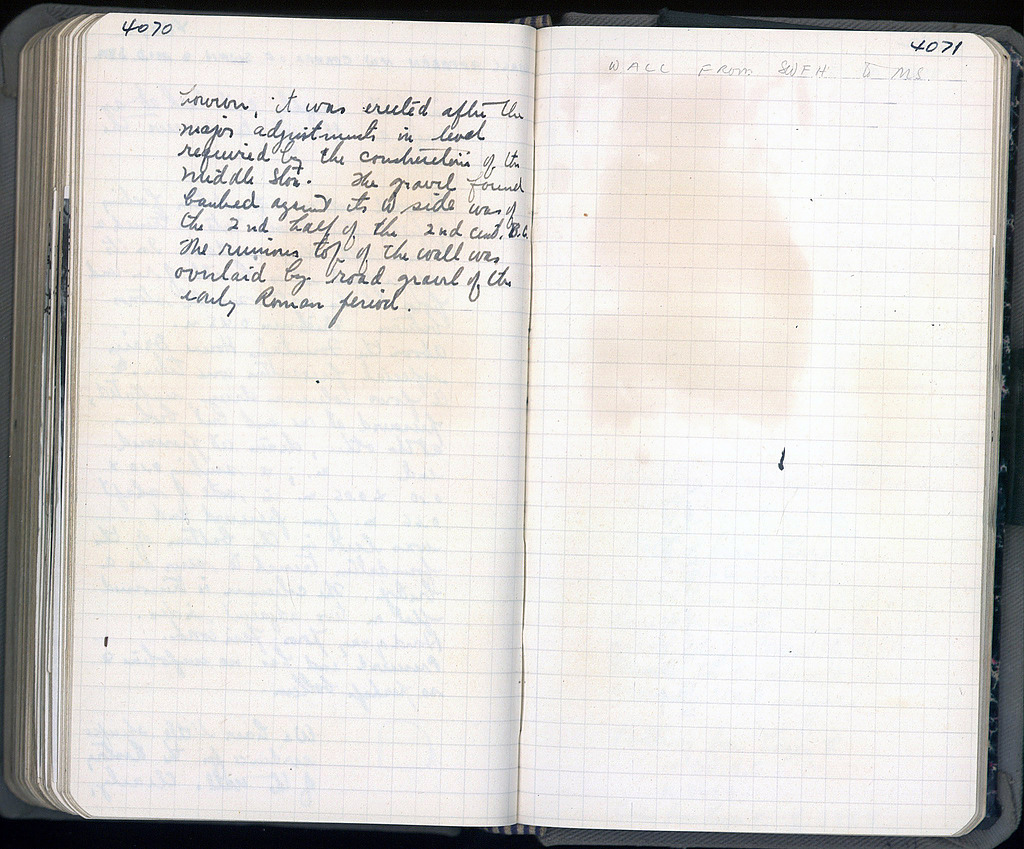 4070
however, it was erected after the
major adjustments in level
required by the construction of the
Middle Stoa. The gravel found
banked against its W side was of
the 2nd half of the 2nd cent. B.C.
The ruinous top of the wall was
overlaid by road gravel of the
early Roman period.
4071
WALL FROM SWFH to MS.